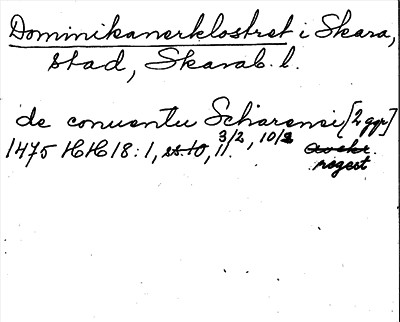 Dominikanerklostret i Skara,
stad, Skarab. l.
de conuentu Scharensi [2 ggr]
1475 HH 18:1, s. 10, 11. 3/2, 10/2 Avskr.
regest